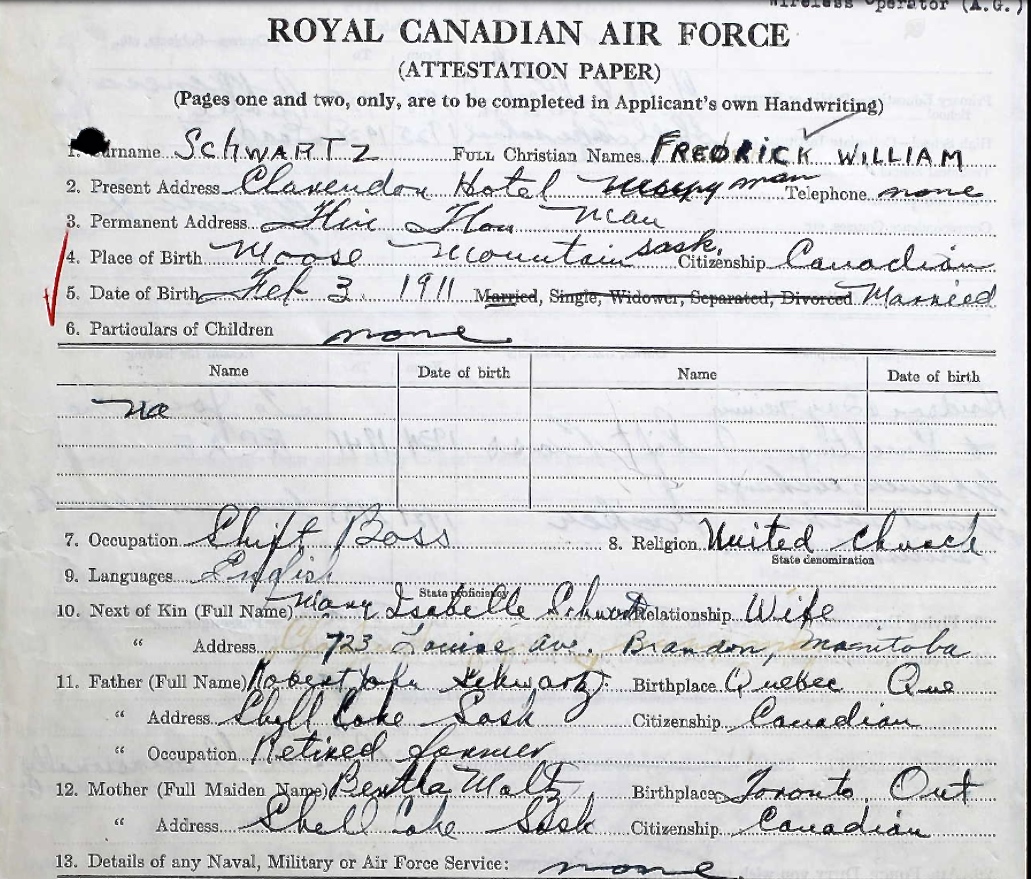 Wireless Operator (A.G.)
ROYAL CANADIAN AIR FORCE
(ATTESTATION PAPER)
(Pages one and two, only, are to be completed in Applicant's own Handwriting)
1. Surname SCHWARTZ FULL Christian Names FREDRICK WILLIAM
2. Present Address Clarendon Hotel man Telephone none
3. Permanent Address Flin Flon Man
4. Place of Birth Moose Mountain Sask. Citizenship Canadian
5. Date of Birth Feb 3. 1911 Married, Single, Widower, Separated, Divorced Married
6. Particulars of Children none
Name Date of birth Name Date of birth
no
7. Occupation Shift Boss 8. Religion United Church
State denomination
9. Languages English
State proficiency
10. Next of Kin (Full Name) Mary Isabelle Schwartz Relationship Wife
" Address 723 Louise Ave. Brandon, Manitoba
11. Father (Full Name) Robert Schwartz Birthplace Quebec Que
" Address Shell Lake Sask Citizenship Canadian
" Occupation Retired farmer
12. Mother (Full Maiden Name) Bertha Waltz Birthplace Toronto, Ont
" Address Shell Lake Sask Citizenship Canadian
13. Details of any Naval, Military or Air Force Service: none